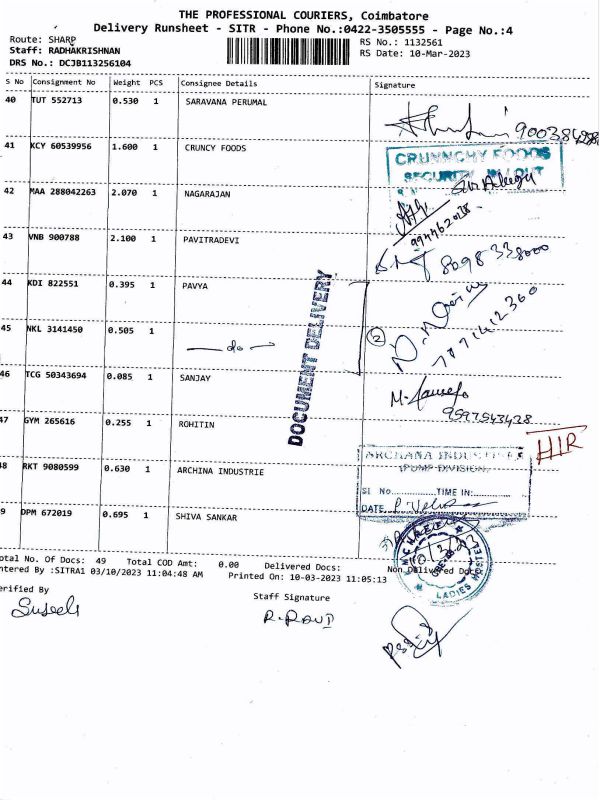 THE PROFESSIONAL COURIERS, Coimbatore
Delivery Runsheet - SITR - Phone No.:0422-3505555 - Page No.:4
Route: SHARP
RS No.: 1132561
Staff: RADHAKRISHNAN
RS Date: 10-Mar-2023
DRS No.: DCJB113256104
S No Consignment No Weight PCS Consignee Details Signature
40 TUT 552713 0.530 1 SARAVANA PERUMAL
41 KCY 60539956 1.600 1 CRUNCY FOODS
CRUNNCHY FOODS
SECURITY
42 MAA 288042263 2.070 1 NAGARAJAN
43 VNB 900788 2.100 1 PAVITRADEVI
8098338000
44 KDI 822551 0.395 1 PAVYA
DOCUMENT DELIVERY
45 NKL 3141450 0.505 1 — do — 2
46 TCG 50343694 0.085 1 SANJAY
9597543428
47 GYM 265616 0.255 1 ROHITIN
HIR
ARCHANA INDUSTRIES
(PUMP DIVISION)
48 RKT 9080599 0.630 1 ARCHINA INDUSTRIE
Sl No. TIME IN:
DATE
49 DPM 672019 0.695 1 SHIVA SANKAR
10/3/23
LADIES HOSTEL
otal No. Of Docs: 49 Total COD Amt: 0.00 Delivered Docs: Non Delivered Docs
ntered By :SITRA1 03/10/2023 11:04:48 AM Printed On: 10-03-2023 11:05:13
erified By
Staff Signature
Suseela
R. RAVI